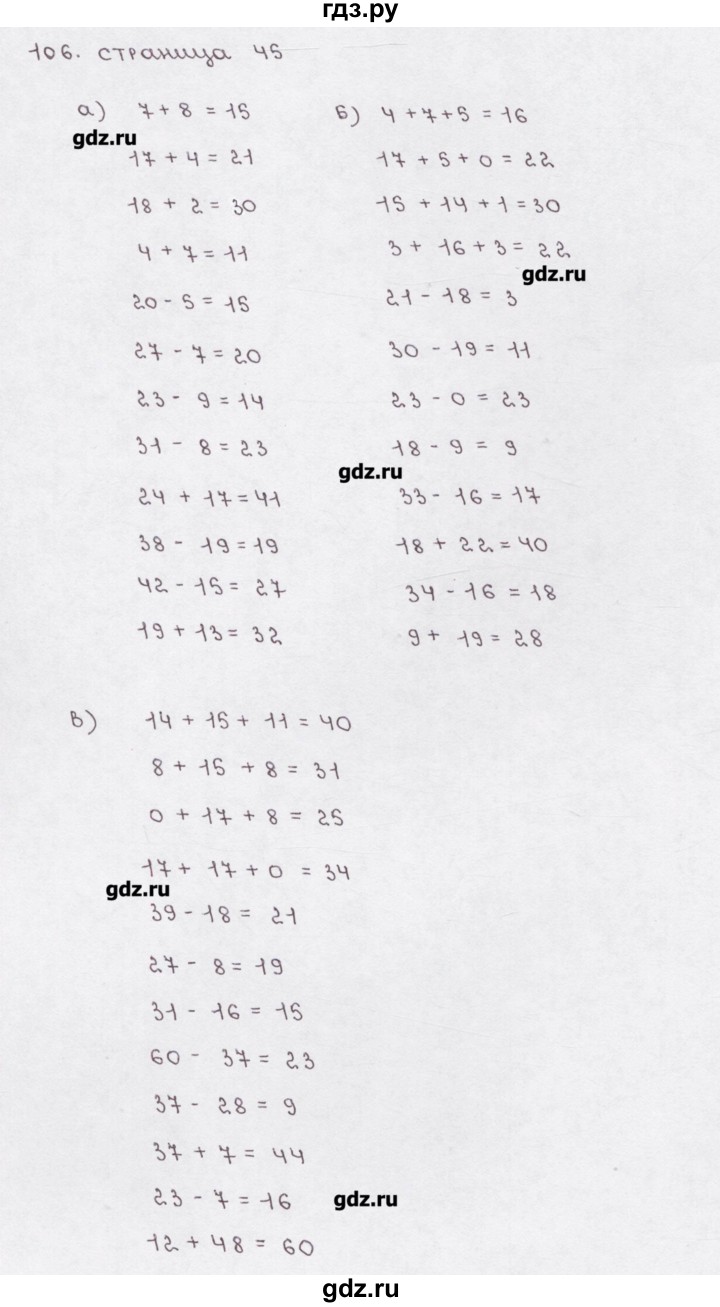 гдз.ру
106. страница 45
а) 7 + 8 = 15
gdz.ru
17 + 4 = 21
18 + 2 = 30
4 + 7 = 11
20 - 5 = 15
27 - 7 = 20
23 - 9 = 14
31 - 8 = 23
24 + 17 = 41
38 - 19 = 19
42 - 15 = 27
19 + 13 = 32
Б) 4 + 7 + 5 = 16
17 + 5 + 0 = 22
15 + 14 + 1 = 30
3 + 16 + 3 = 22
gdz.ru
21 - 18 = 3
30 - 19 = 11
23 - 0 = 23
18 - 9 = 9
gdz.ru
33 - 16 = 17
18 + 22 = 40
34 - 16 = 18
9 + 19 = 28
В) 14 + 15 + 11 = 40
8 + 15 + 8 = 31
0 + 17 + 8 = 25
17 + 17 + 0 = 34
gdz.ru
39 - 18 = 21
27 - 8 = 19
31 - 16 = 15
60 - 37 = 23
37 - 28 = 9
37 + 7 = 44
23 - 7 = 16
gdz.ru
12 + 48 = 60
gdz.ru